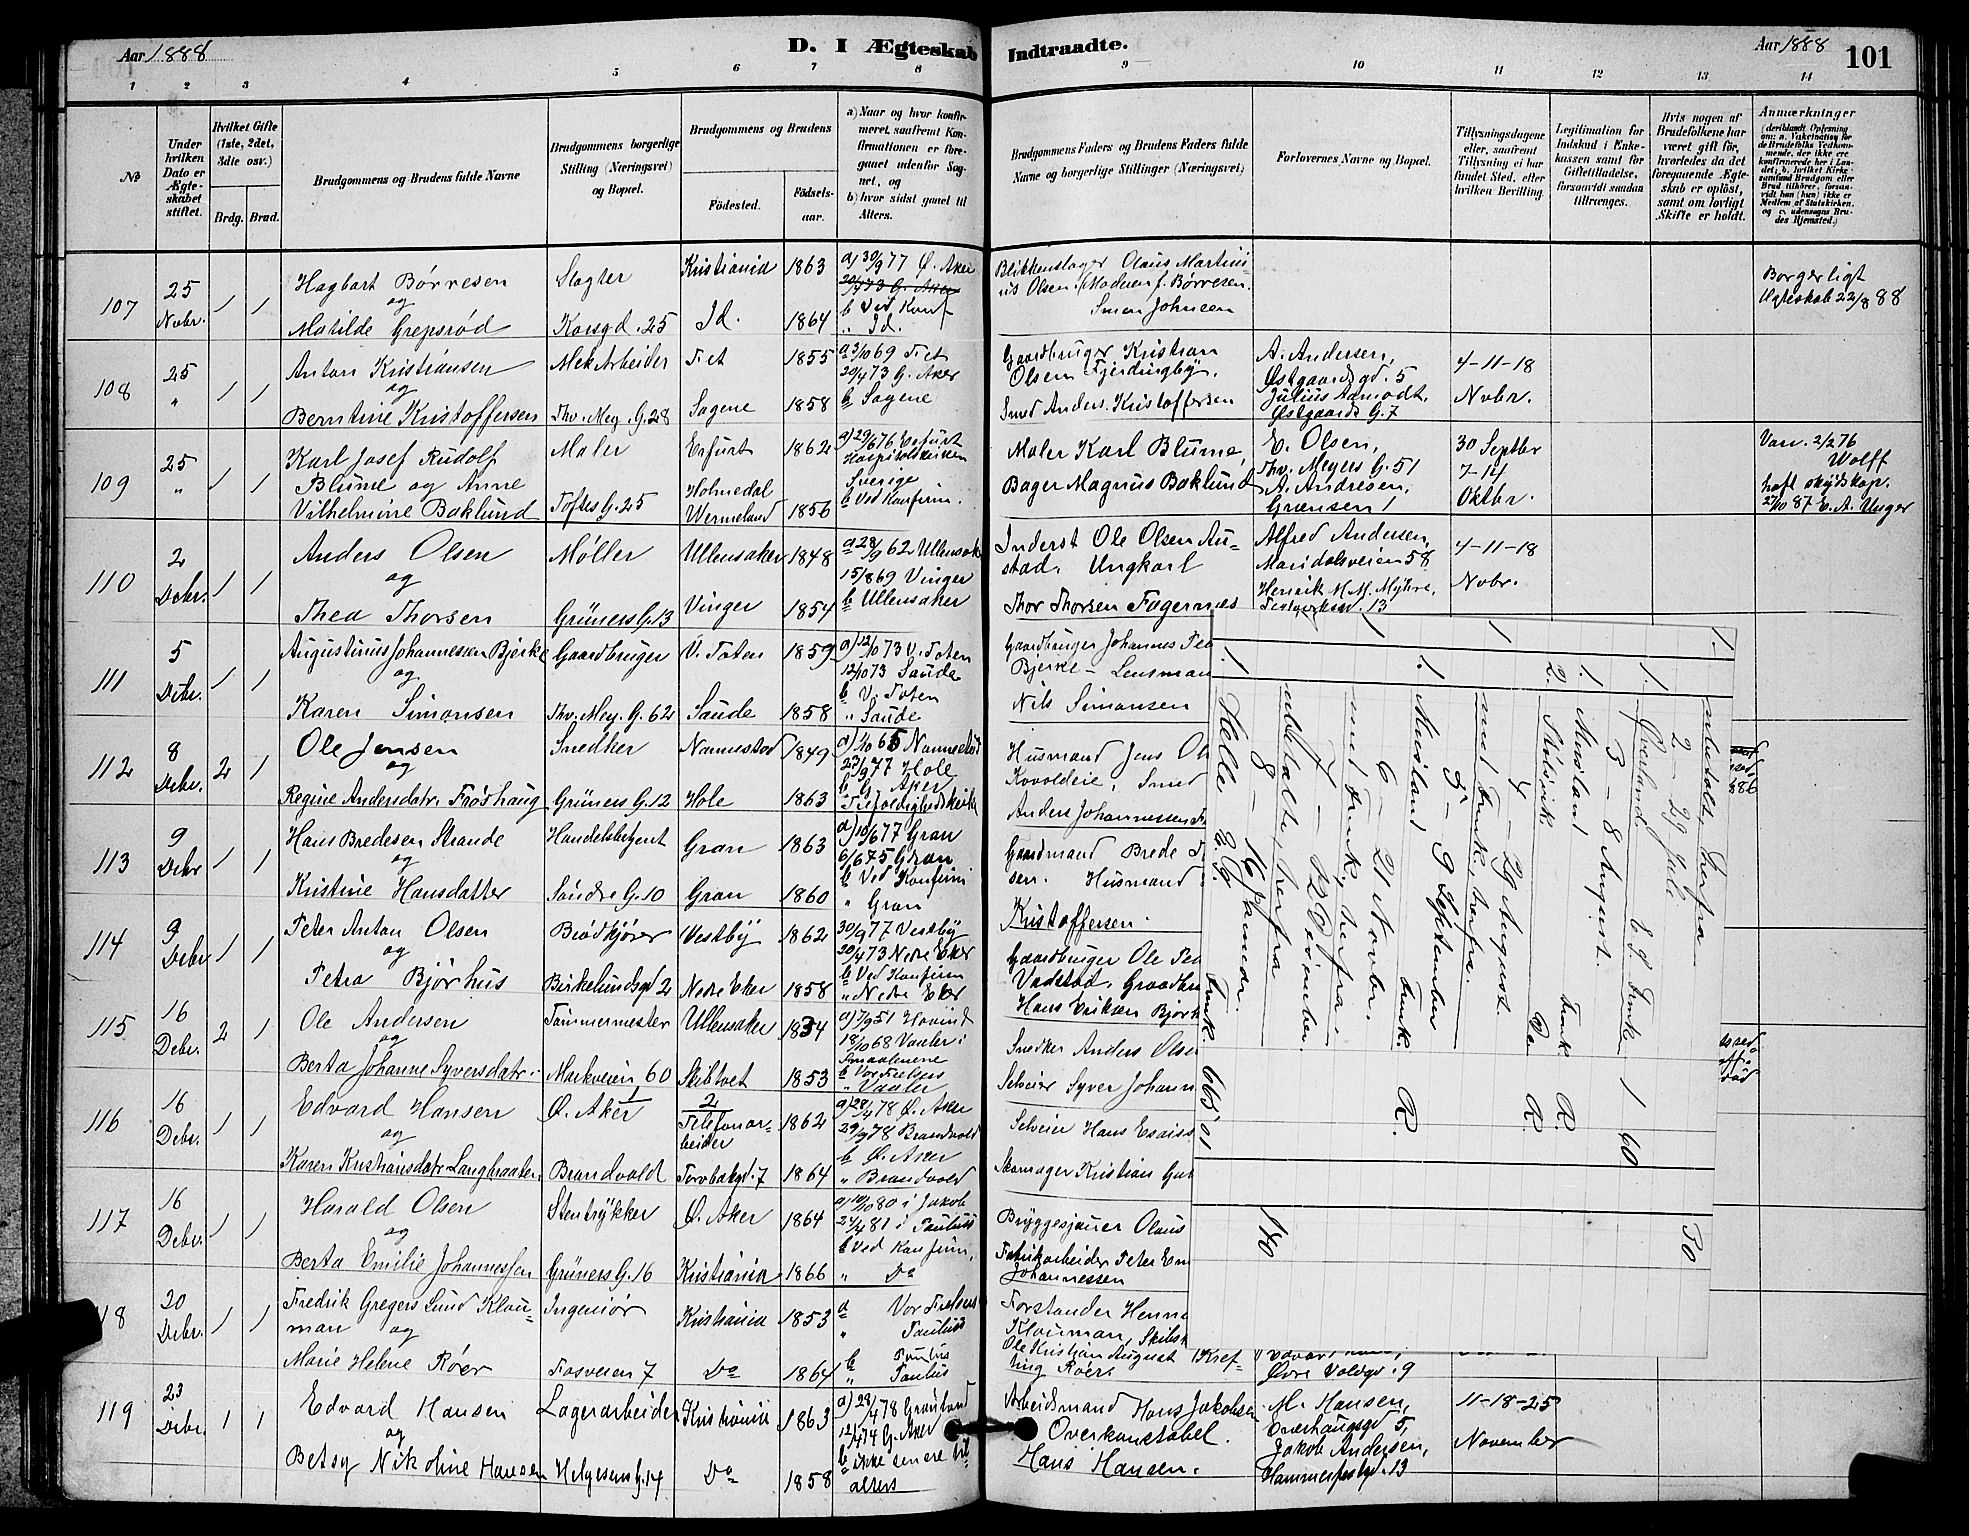 Aar 1888
D. I Ægteskab Indtraadte.
Aar 1888
101
1 2 3 4 5 6 7 8 9 10 11 12 13 14
No
Under hvilken Dato er Ægteskabet stiftet.
Hvilket Gifte (1ste, 2det, 3die osv.)
Brdg. Brud.
Brudgommens og Brudens fulde Navne
Brudgommens borgerlige Stilling (Næringsvei) og Bopæl.
Brudgommens og Brudens
Födested.
Födsels-aar.
a) Naar og hvor konfirmeret, saafremt Konfirmationen er foregaaet udenfor Sognet, og
b) hvor sidst gaaet til Alters.
Brudgommens Faders og Brudens Faders fulde Navne og borgerlige Stillinger (Næringsvei)
Forlovernes Navne og Bopæl.
Tillysningsdagene eller, saafremt Tillysning ei har fundet Sted, efter hvilken Bevilling.
Legitimation for Indskud i Enkekassen samt for Giftetilladelse, forsaavidt saadan tiltrænges.
Hvis nogen af Brudefolkene har været gift før, hvorledes da det foregaaende Ægteskab er oplöst, samt om lovligt Skifte er holdt.
Anmærkninger
107
25 Nobr.
1 1
Hagbart Börresen
og
Matilde Grepsröd
Slagter
Korsgd. 25
Kristiania 1863
Id. 1864
a) 30/9 77 Ø. Aker
20/4 73 G. Aker
b Ved Konf
" Id.
Blikkenslager Olaus Martinius Olsen. Moderen f. Börresen.
Simen Johnsen
Borgerligt
Ægteskab 22/8 88
108
25 "
1 1
Anton Kristiansen
og
Berntine Kristoffersen
Mek Arbeider
Thv. Mey. G. 28
Fet 1855
Sagene 1858
a 3/10 69 Fet
20/4 73 G. Aker
b Sagene
Gaardbruger Kristian
Olsen Fjerdingby.
Smed Anders Kristoffersen
A. Andersen,
Østgaardsgd. 5
Julius Aamodt,
Østgaards G. 7
4-11-18
Nobr.
109
25 "
1 1
Karl Josef Rudolf
Blume og Anne
Vilhelmine Baklund
Maler
Toftes G. 25
Erfurt 1862
Holmedal
Wermeland 1856
a) 29/6 76 Erfurt
Sverige
b Ved Konfirm.
Maler Karl Blume,
Bager Magnus Baklund
E. Olsen,
Thv. Meyers G. 51
A. Andresen,
Grænsen 1
30 Septbr
7-14
Oktbr.
Vac. 2/2 76
Wolff
haft skydskop.
27/10 87 E. A. Unger
110
2 Debr.
1 1
Anders Olsen
og
Thea Thorsen
Møller
Grüners G. 13
Ullensaker 1848
Vinger 1854
a 28/9 62 Ullensak
15/8 69 Vinger
b Ullensaker
Inderst Ole Olsen Austad. Ungkarl
Thor Thorsen Fagernæs
Alfred Andersen,
Maridalsveien 58
Henrik M. M. Myhre,
4-11-18
Nobr.
111
5 Debr.
1 1
Augustinus Johannessen Bjerke
og
Karen Simonsen
Gaardbruger
Thv. Mey. G. 62
V. Toten 1859
Saude 1858
a) 12/10 73 V. Toten
12/10 73 Saude
b V. Toten
" Saude
Gaardbruger Johannes Ped
Bjerke - Lensman
Nils Simonsen
112
8 Debr.
2 1
Ole Jensen
og
Regine Andersdatr. Fröshaug
Snedker
Grüners G. 12
Nannestad 1849
Hole 1863
a) 1/10 65 Nannestad
23/9 77 Hole
b G. Aker
" Trefoldighedskirke
Husmand Jens Ol
Smed
Anders Johannessen
113
9 Debr
1 1
Hans Bredesen Strande
og
Kristine Hansdatter
Handelsbetjent
Söndre G. 10
Gran 1863
Gran 1860
a) 10/6 77 Gran
6/6 75 Gran
b Ved Konfirm
" Gran
Gaardmand Brede
sen. Husmand
Kristoffersen.
114
9 Debr
1 1
Peter Anton Olsen
og
Petra Bjørhus
Brödkjörer
Birkelundsgd 2
Vestby 1862
Nedre Eker 1858
30/9 77 Vestby
20/4 73 Nedre Eker
b Ved Konfirm
" Nedre Eker
Gaardbruger Ole Ped
Vadstad, Gaardbru
Hans Eriksen Bjørh
115
16 Debr.
2 1
Ole Andersen
og
Berta Johanne Syversdatr.
Tømmermester
Markveien 60
Ullensaker 1834
Skibtvet 1853
a) 7/9 51 Hovind
18/10 68 Vaaler i Smaalenene
b Vor Frelsers
" Vaaler
Snedker Anders Olsen
Selveier Syver Johann
116
16 Debr.
1 1
Edvard Hansen
og
Karen Kristiansdatr Langbraaten
Ø. Aker 1
Brandvold
2 Telefonarbeider 1862
Torvbakgd. 7 1864
a) 28/4 78 Ø. Aker
29/9 78 Brandvold
b Ø. Aker
" Brandvold
Selveier Hans Esaiss
Skomager Kristian Gu
117
16 Debr.
1 1
Harald Olsen
og
Berta Emilie Johannessen
Stentrykker
Grüners G. 16
Ø. Aker 1864
Kristiania 1866
a) 10/10 80 i Jakob
24/4 81 i Paulus
b Ved Konfirm.
" Do
Bryggesjauer Olaus
Fabrikarbeider Peter Em
Johannessen
118
20 Debr.
1 1
Fredrik Gregers Lund Klouman og
Marie Helene Röer
Ingeniör
Fosveien 7
Kristiania 1853
Do 1864
a Vor Frelsers
" Paulus
b Paulus
" Paulus
Forstander Henn
Klouman, Skibs
Ole Kristian August Krefting Röer.
Øvre Voldgd. 9
119
23 Debr.
1 1
Edvard Hansen
og
Betsy Nikoline Hansen
Lagerarbeider
Helgesens G. 14
Kristiania 1863
Do 1858
a) 28/4 78 Grønland
12/4 74 G. Aker
b ikke senere til
alters
Arbeidsmand Hans Jakobsen
Overkonstabel.
Hans Hansen.
M. Hansen,
Overhaugsgd 5,
Jakob Andersen,
Hammerfestgd. 13
11-18-25
November
1. udbetalt, herfra
2 - 29 Juli
1. Qverland b. d. Trmk. 1 60
3 - 8 August
1. Midtland Trmk R.
2. Stülsvik Do R.
4 - 29 August.
1 med Trmk, herfra.
5 - 9 September
1. Midtland Trmk. R.
6 - 21 Novbr.
1 med Trmk, herfra.
7 - 12 December.
udbetalte, herfra
8 - 16 Januar.
1. Halle E. G. Trmk. 665 01
140
30